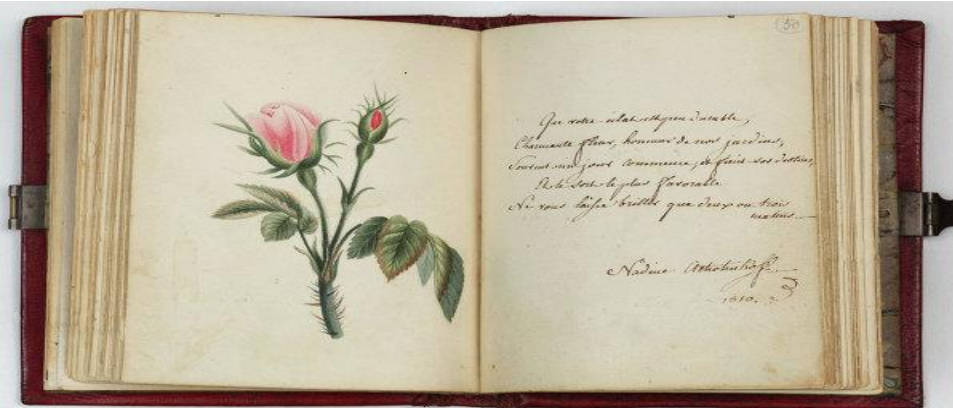 Que votre éclat est peu durable,
Charmante fleur, honneur de nos jardins,
Souvent un jour commence, & finit vos destins,
Et le sort le plus favorable
Ne vous laisse briller que deux ou trois
matins.—
Nadine
1810.